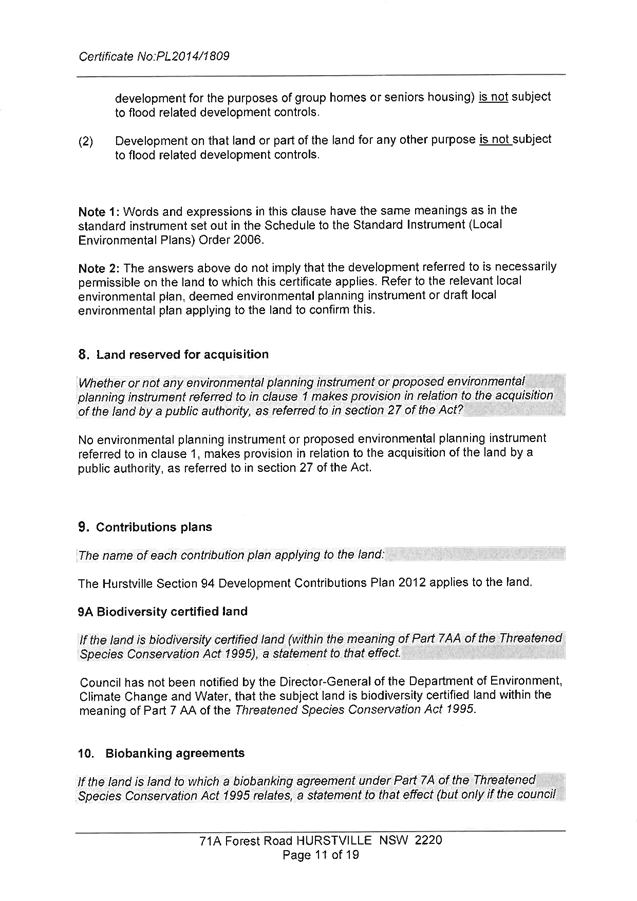 Certificate No:PL2014/1809
development for the purposes of group homes or seniors housing) is not subject
to flood related development controls.
(2) Development on that land or part of the land for any other purpose is not subject
to flood related development controls.
Note 1: Words and expressions in this clause have the same meanings as in the
standard instrument set out in the Schedule to the Standard Instrument (Local
Environmental Plans) Order 2006.
Note 2: The answers above do not imply that the development referred to is necessarily
permissible on the land to which this certificate applies. Refer to the relevant local
environmental plan, deemed environmental planning instrument or draft local
environmental plan applying to the land to confirm this.
8. Land reserved for acquisition
Whether or not any environmental planning instrument or proposed environmental
planning instrument referred to in clause 1 makes provision in relation to the acquisition
of the land by a public authority, as referred to in section 27 of the Act?
No environmental planning instrument or proposed environmental planning instrument
referred to in clause 1, makes provision in relation to the acquisition of the land by a
public authority, as referred to in section 27 of the Act.
9. Contributions plans
The name of each contribution plan applying to the land:
The Hurstville Section 94 Development Contributions Plan 2012 applies to the land.
9A Biodiversity certified land
If the land is biodiversity certified land (within the meaning of Part 7AA of the Threatened
Species Conservation Act 1995), a statement to that effect.
Council has not been notified by the Director-General of the Department of Environment,
Climate Change and Water, that the subject land is biodiversity certified land within the
meaning of Part 7 AA of the Threatened Species Conservation Act 1995.
10. Biobanking agreements
If the land is land to which a biobanking agreement under Part 7A of the Threatened
Species Conservation Act 1995 relates, a statement to that effect (but only if the council
71A Forest Road HURSTVILLE NSW 2220
Page 11 of 19